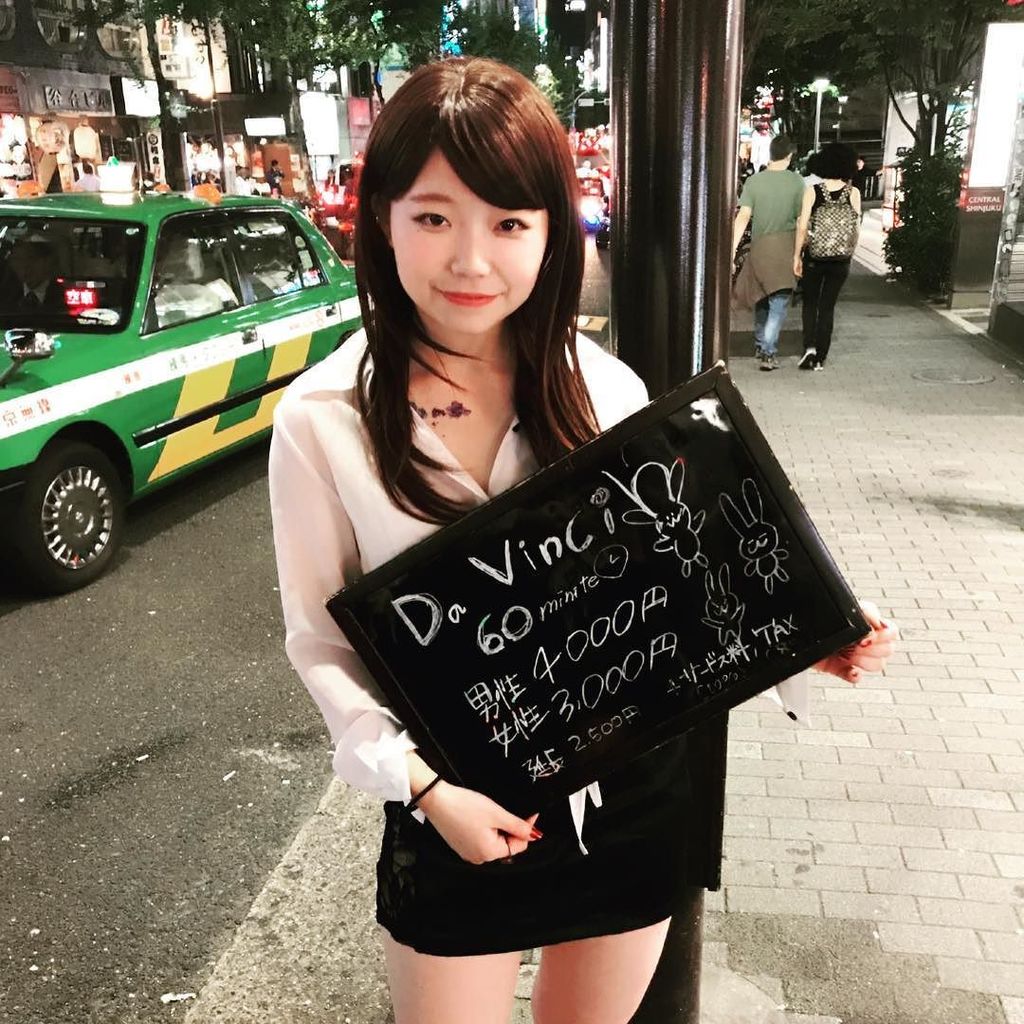 Da Vinci
60 minite
男性 4000円
女性 3,000円
延長 2.500円
サービス料, TAX
空車
CENTRAL
SHINJUKU